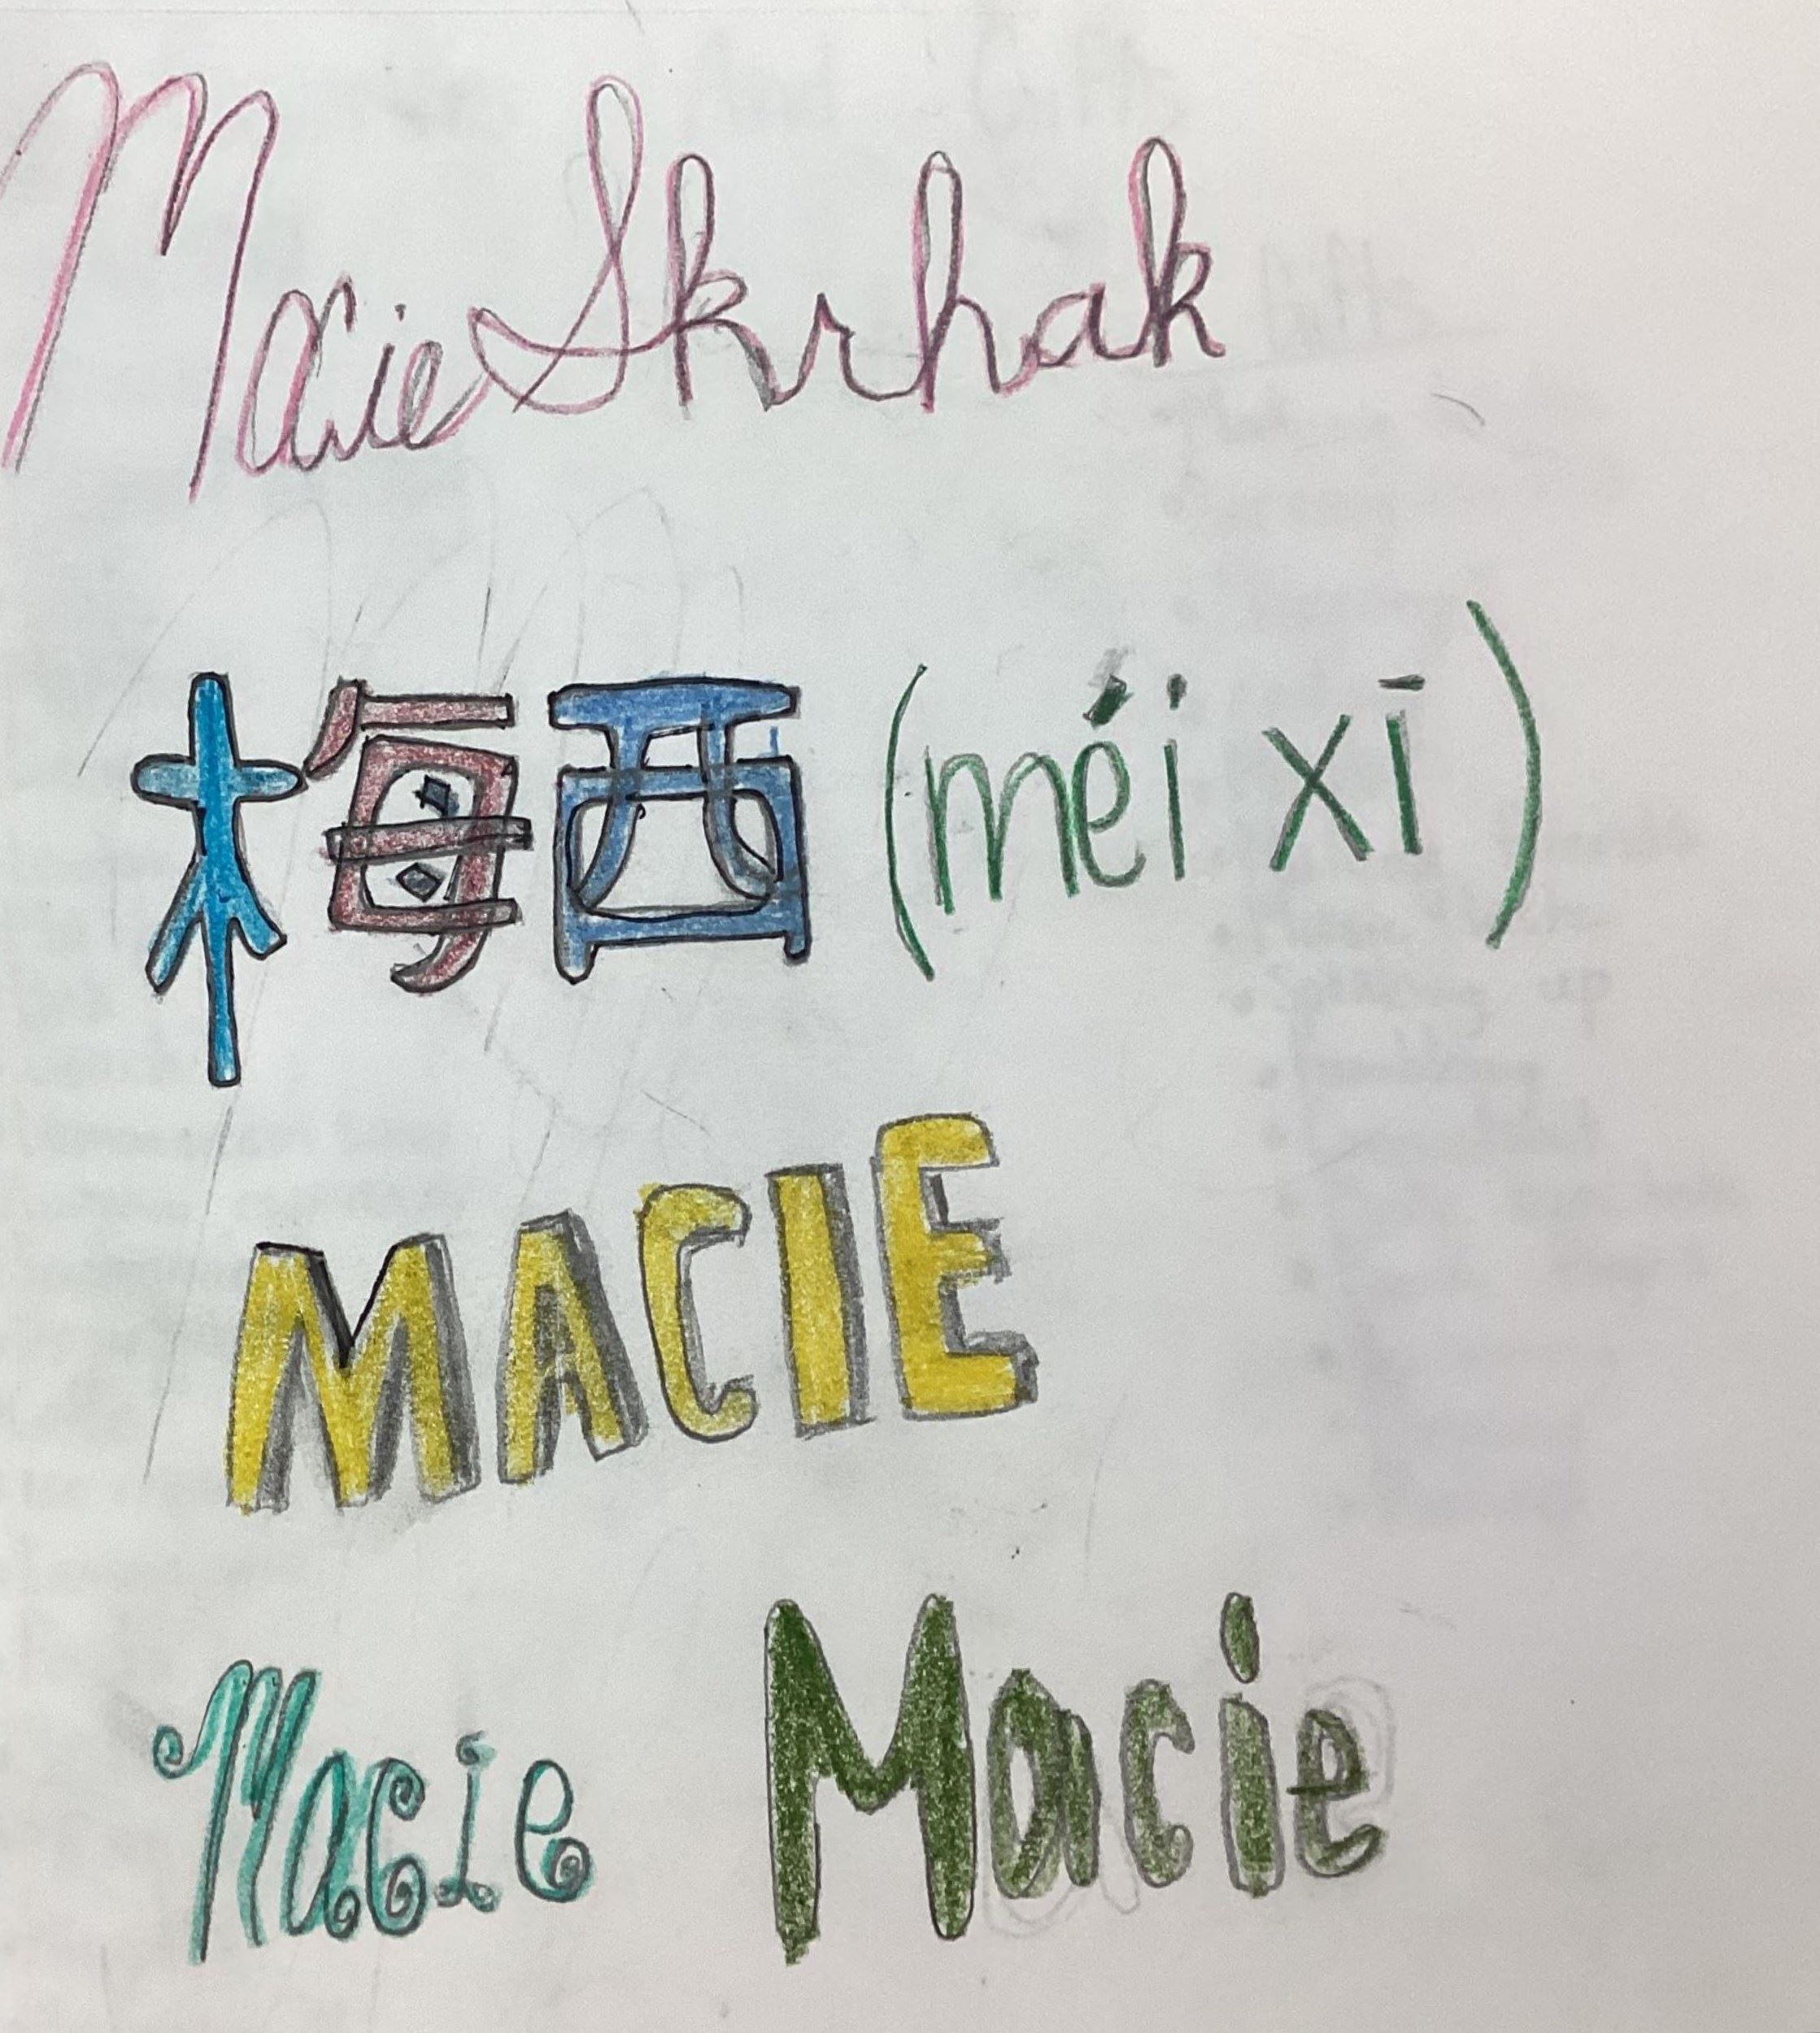 Macie Skrhak
梅西 (méi xī)
MACIE
Macie Macie